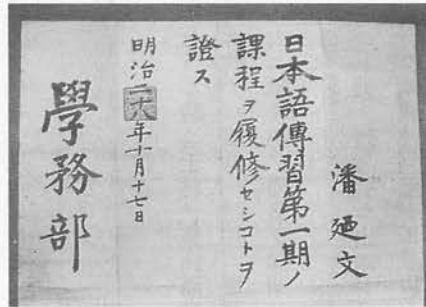 潘廼文
日本語傳習第一期ノ
課程ヲ履修セシコトヲ
證ス
明治二十八年十月十七日
學務部